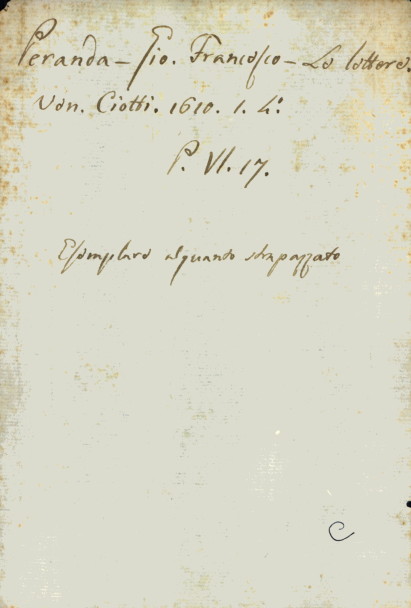 Peranda – Gio. Francesco – Le lettere.
Ven. Ciotti. 1610. 1. 4.º
P. VI. 17.
Esemplare alquanto strapazzato
C